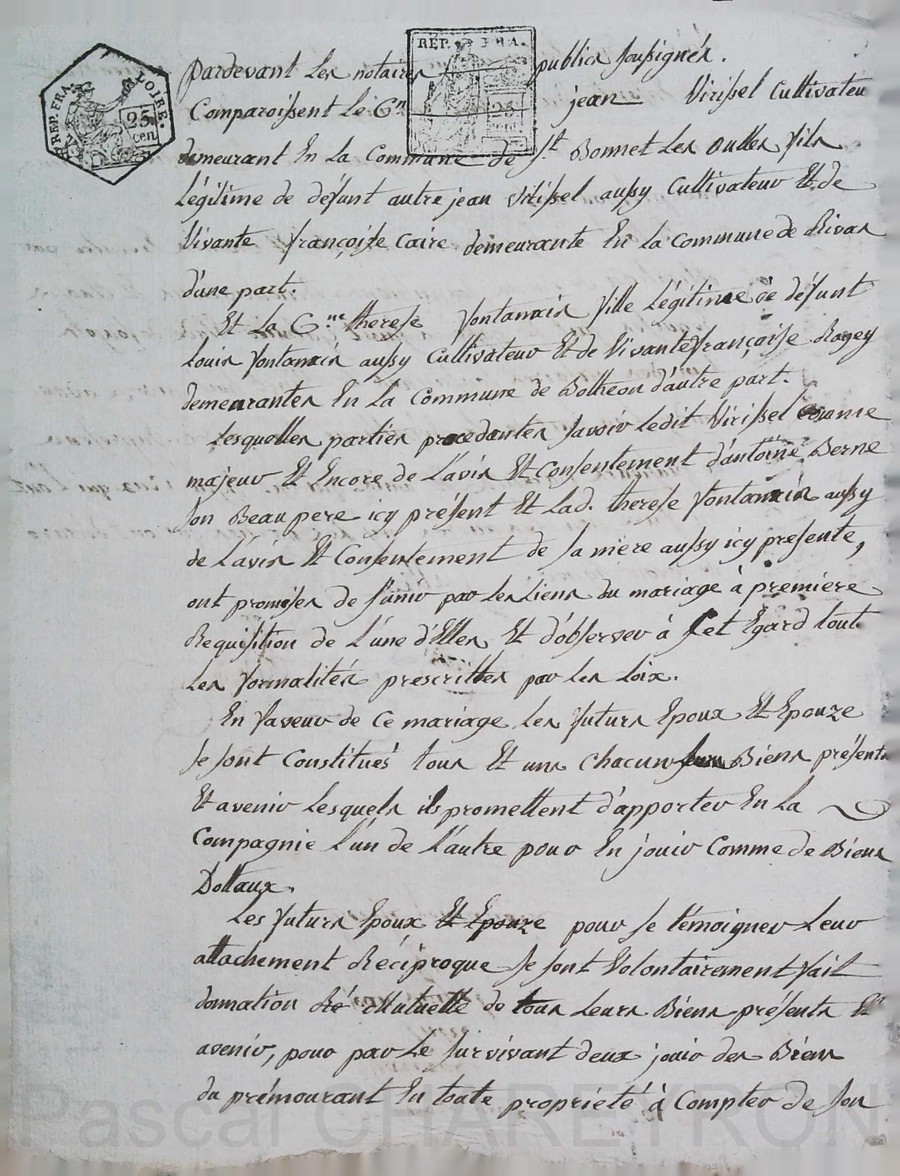 REP. FRA.
LOIRE.
25
cen
REP. FRA.
25
pardevant Les notaires publics soussignés.
Comparoissent Le C.en jean Virissel Cultivateur
demeurant En La Commune de St. Bonnet Les oulles fils
Légitime de défunt autre jean Virissel aussy Cultivateur Et de
Vivante françoise Caire demeurante En La Commune de Rivas
d'une part.
Et La C.ne therese fontanais fille Légitime de défunt
Louis fontanais aussy Cultivateur Et de Vivante françoise Ragey
demeurantes En La Commune de Botheon d'autre part.
Lesquelles parties procedantes savoir Ledit Virissel Comme
majeur Et Encore de L'avis Et Consentement d'antoine Berne
son Beau pere icy présent Et Lad. therese fontanais aussy
de L'avis Et Consentement de sa mere aussy icy presente,
ont promises de s'unir par Les Liens du mariage à premiere
Requisition de L'une d'Elles Et d'observer à Cet Egard tout
Les formalités prescrittes par Les Loix.
En faveur de Ce mariage Les futurs Epoux Et Epouze
se sont Constitués tous Et uns chacuns Leurs Biens présents
Et avenir Lesquels ils promettent d'apporter En La
Compagnie L'un de L'autre pour En jouir Comme de Biens
Dottaux.
Les futurs Epoux Et Epouze pour se témoigner Leur
attachement Réciproque se sont Volontairement fait
donnation Mutuelle de tous Leurs Biens présents Et
avenir, pour par Le survivant deux jouir des Biens
du prémourant En toute propriété à Compter de son
Pascal CHAREYRON